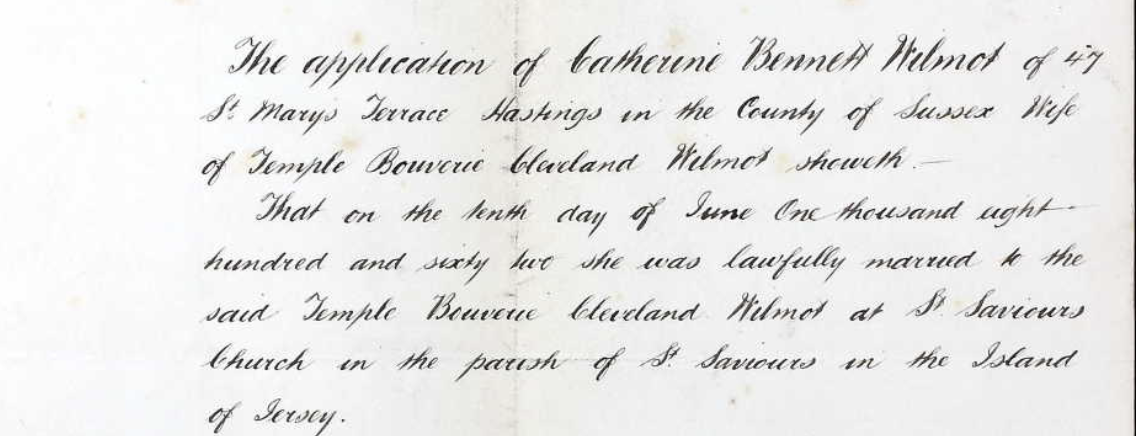 The application of Catherine Bennett Wilmot of 47
St Marys Terrace Hastings in the County of Sussex Wife
of Temple Bouverie Cleveland Wilmot sheweth. —
That on the tenth day of June One thousand eight
hundred and sixty two she was lawfully married to the
said Temple Bouverie Cleveland Wilmot at St. Saviours
Church in the parish of St. Saviours in the Island
of Jersey.